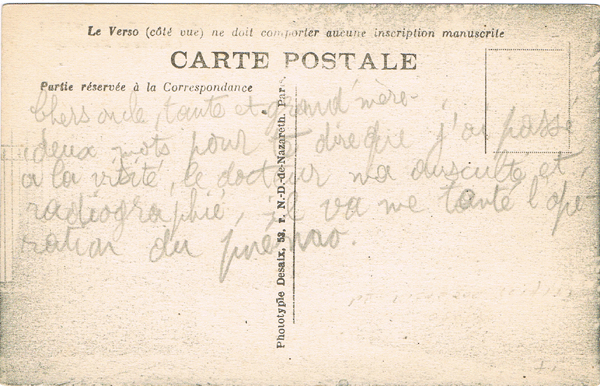 Le Verso (côté vue) ne doit comporter aucune inscription manuscrite
CARTE POSTALE
Partie réservée à la Correspondance
Chers oncle, tante et grand'mère
deux mots pour te dire que j'ai passé
a la visite, le docteur m'a ausculté et
radiographié, il va me tanté l'opé-
ration du pneumo.
Phototypie Desaix, 53, r. N.-D.-de-Nazareth, Paris